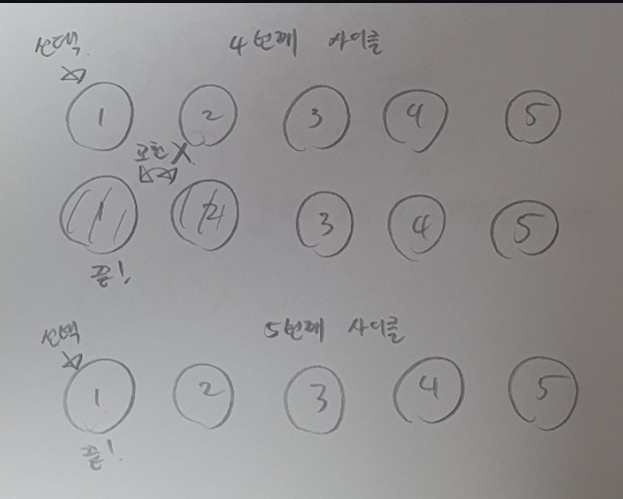 선택
4번째 사이클
1 2 3 4 5
교환 X
1 2 3 4 5
끝!
선택
5번째 사이클
1 2 3 4 5
끝!